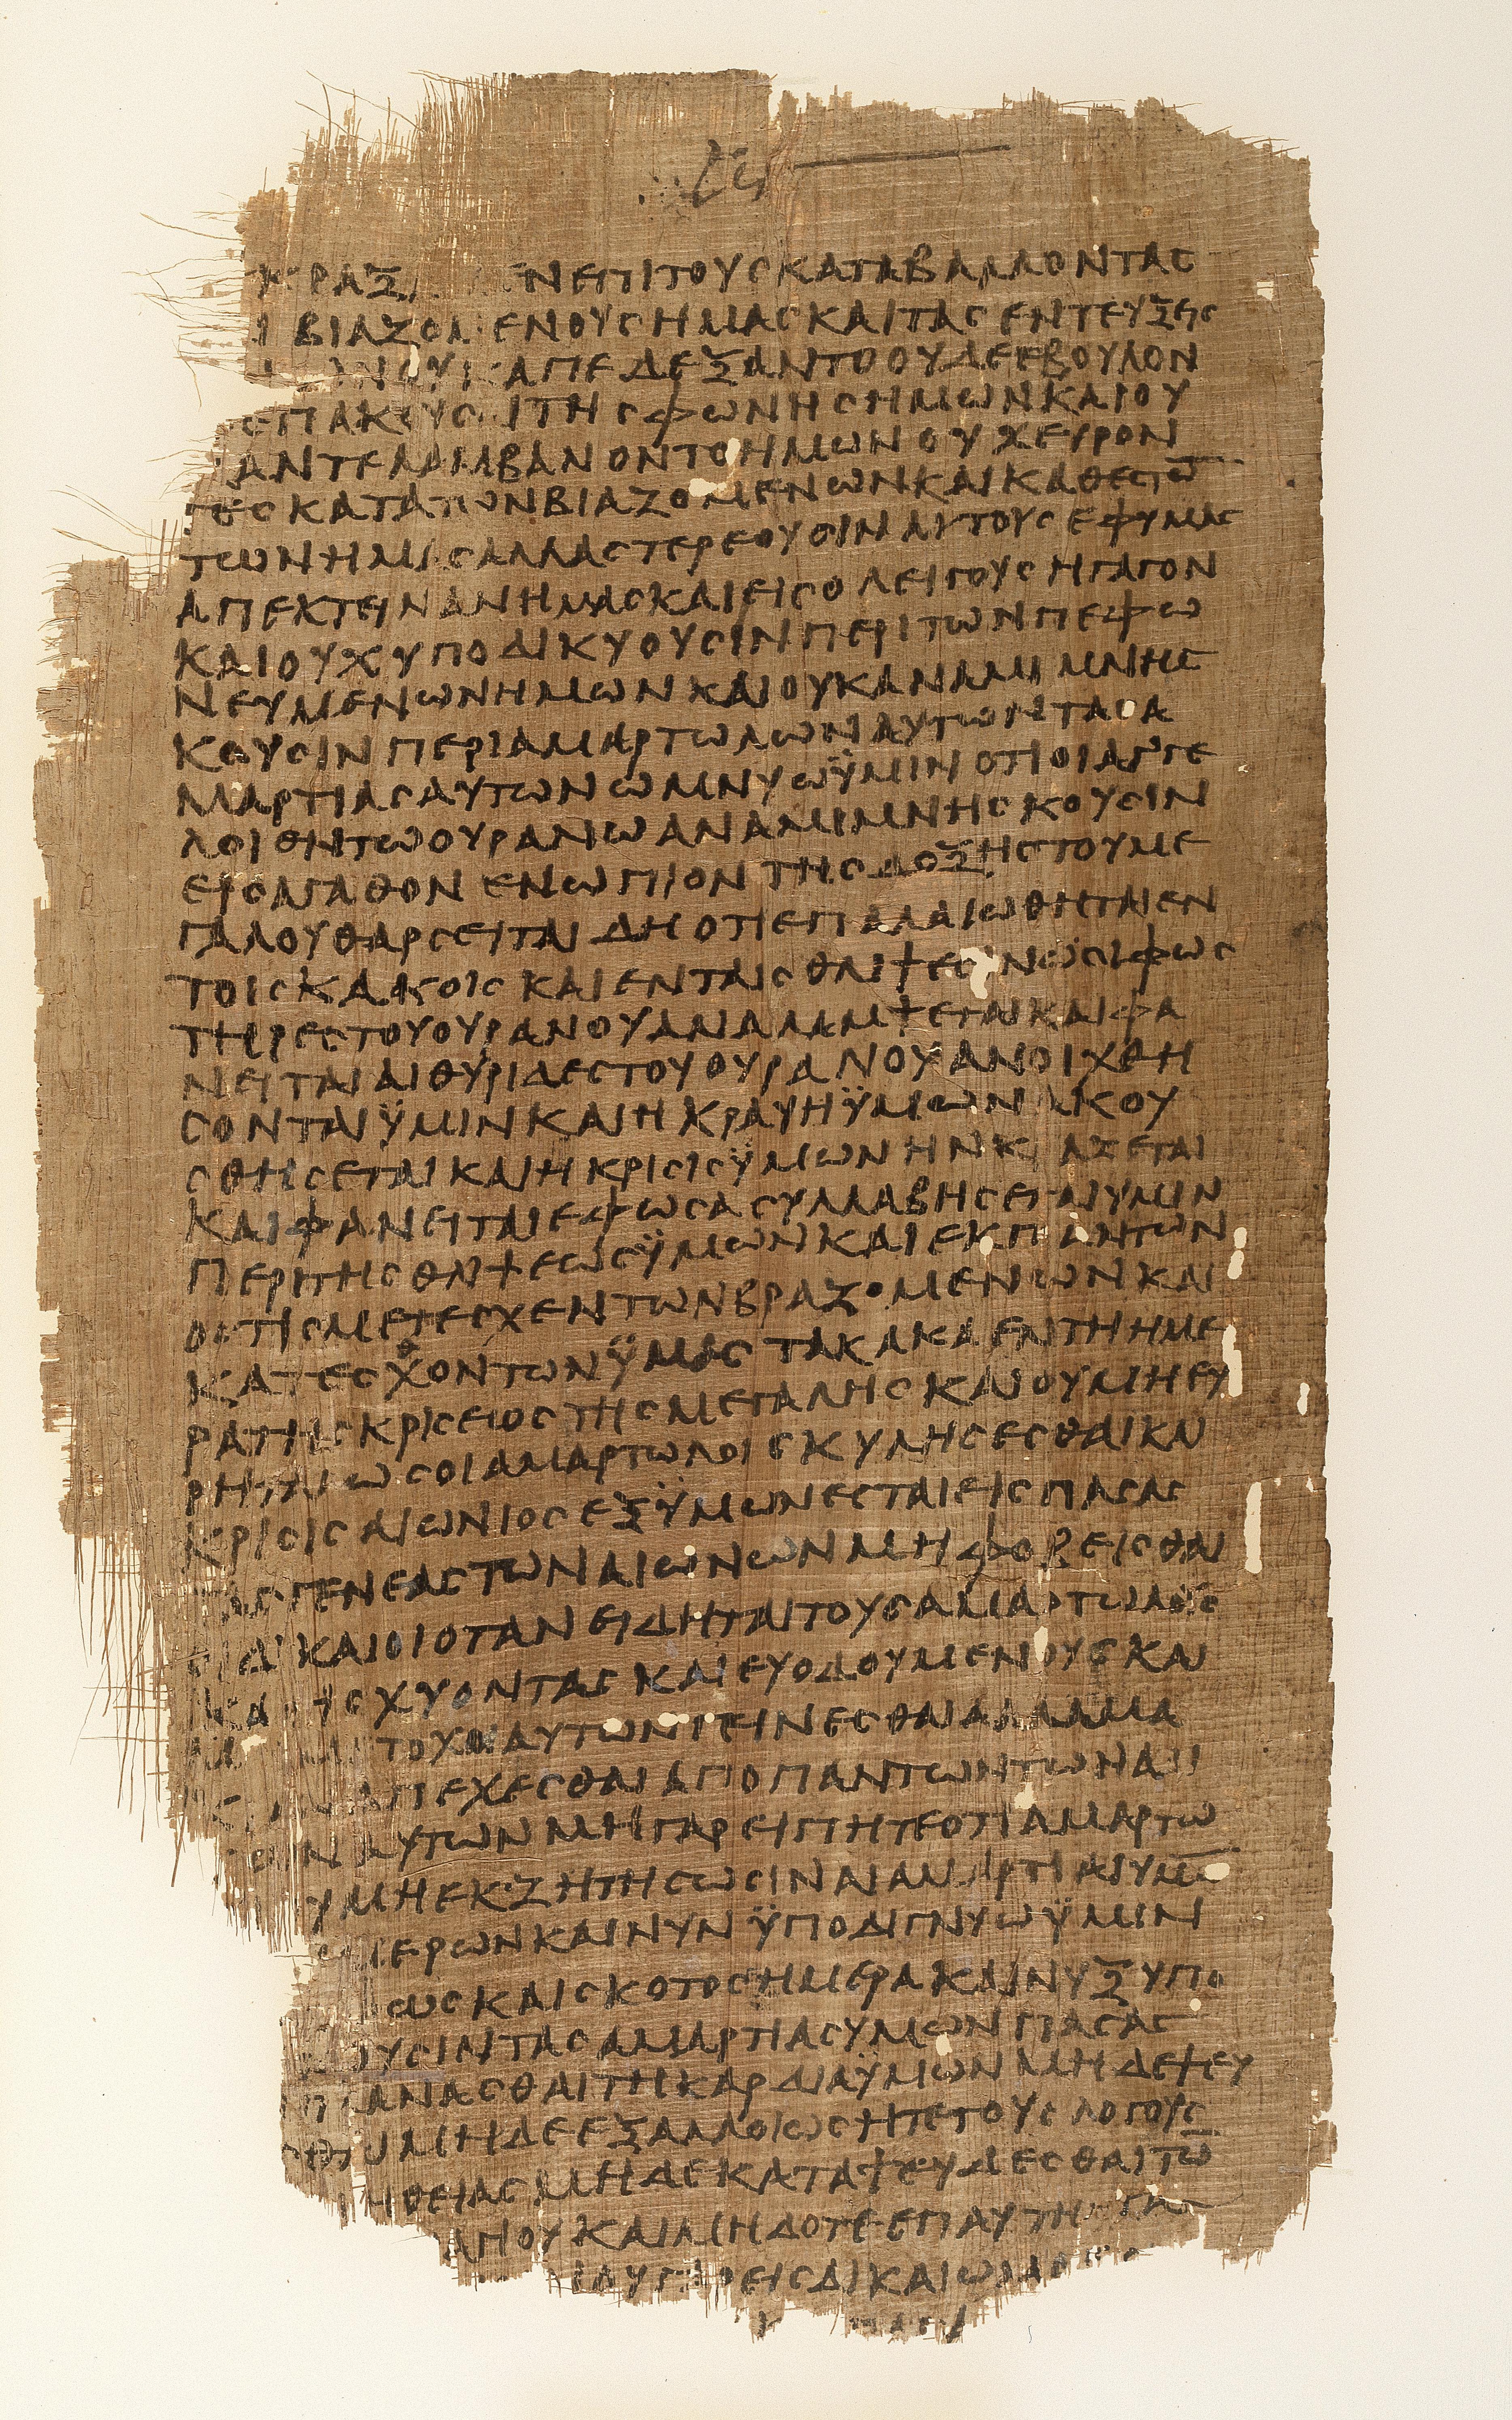 ΕΝ ΕΠΙ ΤΟΥΣ ΚΑΤΑΒΑΛΛΟΝΤΑΣ
ΒΙΑΖΟΜΕΝΟΥΣ ΗΜΑΣ ΚΑΙ ΤΑΣ ΕΝΤΕΥΞΕΙΣ
ΟΥΚ ΑΠΕΔΕΞΑΝΤΟ ΟΥΔΕ ΕΒΟΥΛΟΝ
ΕΠΑΚΟΥΣΑΙ ΤΗΣ ΦΩΝΗΣ ΗΜΩΝ ΚΑΙ ΟΥ
ΑΝΤΕΛΑΜΒΑΝΟΝΤΟ ΗΜΩΝ ΟΥΧ ΕΥΡΟΝ
ΤΕΣ ΚΑΤΑ ΤΩΝ ΒΙΑΖΟΜΕΝΩΝ ΚΑΙ ΚΑΘΕΣΤΩ̅
ΤΩΝ ΗΜΑΣ ΑΛΛΑ ΣΤΕΡΕΟΥΣΙΝ ΑΥΤΟΥΣ ΕΦ ΥΜΑΣ
ΑΠΕΚΤΕΙΝΑΝ ΗΜΑΣ ΚΑΙ ΕΙΣ ΟΛΕΙΓΟΥΣ ΗΓΑΓΟΝ
ΚΑΙ ΟΥΧ ΥΠΟΔΙΚΥΟΥΣΙΝ ΠΕΡΙ ΤΩΝ ΠΕΦΩ
ΝΕΥΜΕΝΩΝ ΗΜΩΝ ΚΑΙ ΟΥΚ ΑΝΑΜΙΜΝΗΣ
ΚΟΥΣΙΝ ΠΕΡΙ ΑΜΑΡΤΩΛΩΝ ΑΥΤΩΝ ΤΑΣ Α
ΜΑΡΤΙΑΣ ΑΥΤΩΝ ΩΜΝΥΩ ΫΜΙΝ ΟΤΙ ΟΙ ΑΓΓΕ
ΛΟΙ ΘΗΤΩ ΟΥΡΑΝΩ ΑΝΑΜΙΜΝΗΣΚΟΥΣΙΝ
ΕΙΣ ΑΓΑΘΟΝ ΕΝΩΠΙΟΝ ΤΗΣ ΔΟΞΗΣ ΤΟΥ ΜΕ
ΓΑΛΟΥ ΘΑΡΣΕΙΤΑΙ ΔΗ ΟΤΙ ΕΠΑΛΑΙΩΘΗΤΑΙ ΕΝ
ΤΟΙΣ ΚΑΚΟΙΣ ΚΑΙ ΕΝ ΤΑΙΣ ΘΛΙΨΕΣΙΝ ΩΣΙ ΦΩΣ
ΤΗΡΕΣ ΤΟΥ ΟΥΡΑΝΟΥ ΑΝΑΛΑΜΨΕΤΑΙ ΚΑΙ ΦΑ
ΝΕΙΤΑΙ ΑΙ ΘΥΡΙΔΕΣ ΤΟΥ ΟΥΡΑΝΟΥ ΑΝΟΙΧΘΗ
ΣΟΝΤΑΙ ΫΜΙΝ ΚΑΙ Η ΚΡΑΥΗ ΫΜΩΝ ΑΚΟΥ
ΣΘΗΣΕΤΑΙ ΚΑΙ Η ΚΡΙΣΙΣ ΫΜΩΝ ΗΝ ΚΡΑΞΕΤΑΙ
ΚΑΙ ΦΑΝΕΙΤΑΙ ΕΦ ΩΣΑ ΣΥΛΛΑΒΗΣΕΤΑΙ ΥΜΙΝ
ΠΕΡΙ ΤΗΣ ΘΛΙΨΕΩΣ ΫΜΩΝ ΚΑΙ ΕΚ ΠΑΝΤΩΝ
ΟΣΤΙΣ ΜΕΤΕΣΧΕΝ ΤΩΝ ΒΡΑΖΟΜΕΝΩΝ ΚΑΙ
ΚΑΤΕΣΧΟΝΤΩΝ ΫΜΑΣ ΤΑ ΚΑΚΑ ΕΝ ΤΗ ΗΜΕ
ΡΑ ΤΗΣ ΚΡΙΣΕΙΟΣ ΤΗΣ ΜΕΓΑΛΗΣ ΚΑΙ ΟΥ ΜΗ ΕΥ
ΡΗΤΑΙ ΩΣ ΟΙ ΑΜΑΡΤΩΛΟΙ ΣΚΥΛΗΣΕΣΘΑΙ ΚΑΙ
ΚΡΙΣΙΣ ΑΙΩΝΙΟΣ ΕΞ ΫΜΩΝ ΕΣΤΑΙ ΕΙΣ ΠΑΣΑΣ
ΤΑΣ ΓΕΝΕΑΣ ΤΩΝ ΑΙΩΝΩΝ ΜΗ ΦΟΒΕΙΣΘΑΙ
ΟΙ ΔΙΚΑΙΟΙ ΟΤΑΝ ΕΙΔΗΤΑΙ ΤΟΥΣ ΑΜΑΡΤΩΛΟΥΣ
ΚΑΤΙΣΧΥΟΝΤΑΣ ΚΑΙ ΕΥΟΔΟΥΜΕΝΟΥΣ ΚΑΙ
ΤΟΧΟΙ ΑΥΤΩΝ ΓΕΙΝΕΣΘΑΙ ΑΛΛΑ ΜΑ
ΑΠΕΧΕΣΘΑΙ ΑΠΟ ΠΑΝΤΩΝ ΤΩΝ ΑΔΙ
ΑΥΤΩΝ ΜΗ ΓΑΡ ΕΙΠΗΤΕ ΟΤΙ ΑΜΑΡΤΩ
ΟΥ ΜΗ ΕΚΖΗΤΗΣΩΣΙΝ ΑΙ ΑΜΑΡΤΙΑΙ ΥΜΩ̅
ΗΜΕΡΩΝ ΚΑΙ ΝΥΝ ΫΠΟΔΙΓΝΥΩ ΫΜΙΝ
ΩΣ ΚΑΙ ΣΚΟΤΟΣ ΗΜΕΡΑ ΚΑΙ ΝΥΞ ΕΠΟ
ΟΥΣΙΝ ΤΑΣ ΑΜΑΡΤΙΑΣ ΥΜΩΝ ΠΑΣΑΣ
ΠΛΑΝΑΣΘΑΙ ΤΗ ΚΑΡΔΙΑ ΫΜΩΝ ΜΗΔΕ ΨΕΥ
ΜΗΔΕ ΕΞΑΛΛΟΙΩΣΗΤΕ ΤΟΥΣ ΛΟΓΟΥΣ
ΗΘΕΙΑΣ ΜΗΔΕ ΚΑΤΑΨΕΥΔΕΣΘΑΙ ΤΩ̅
ΑΓΙΟΥ ΚΑΙ ΜΗ ΔΟΤΕ ΕΠΑ
ΕΙΣ ΔΙΚΑΙΩΜΑ